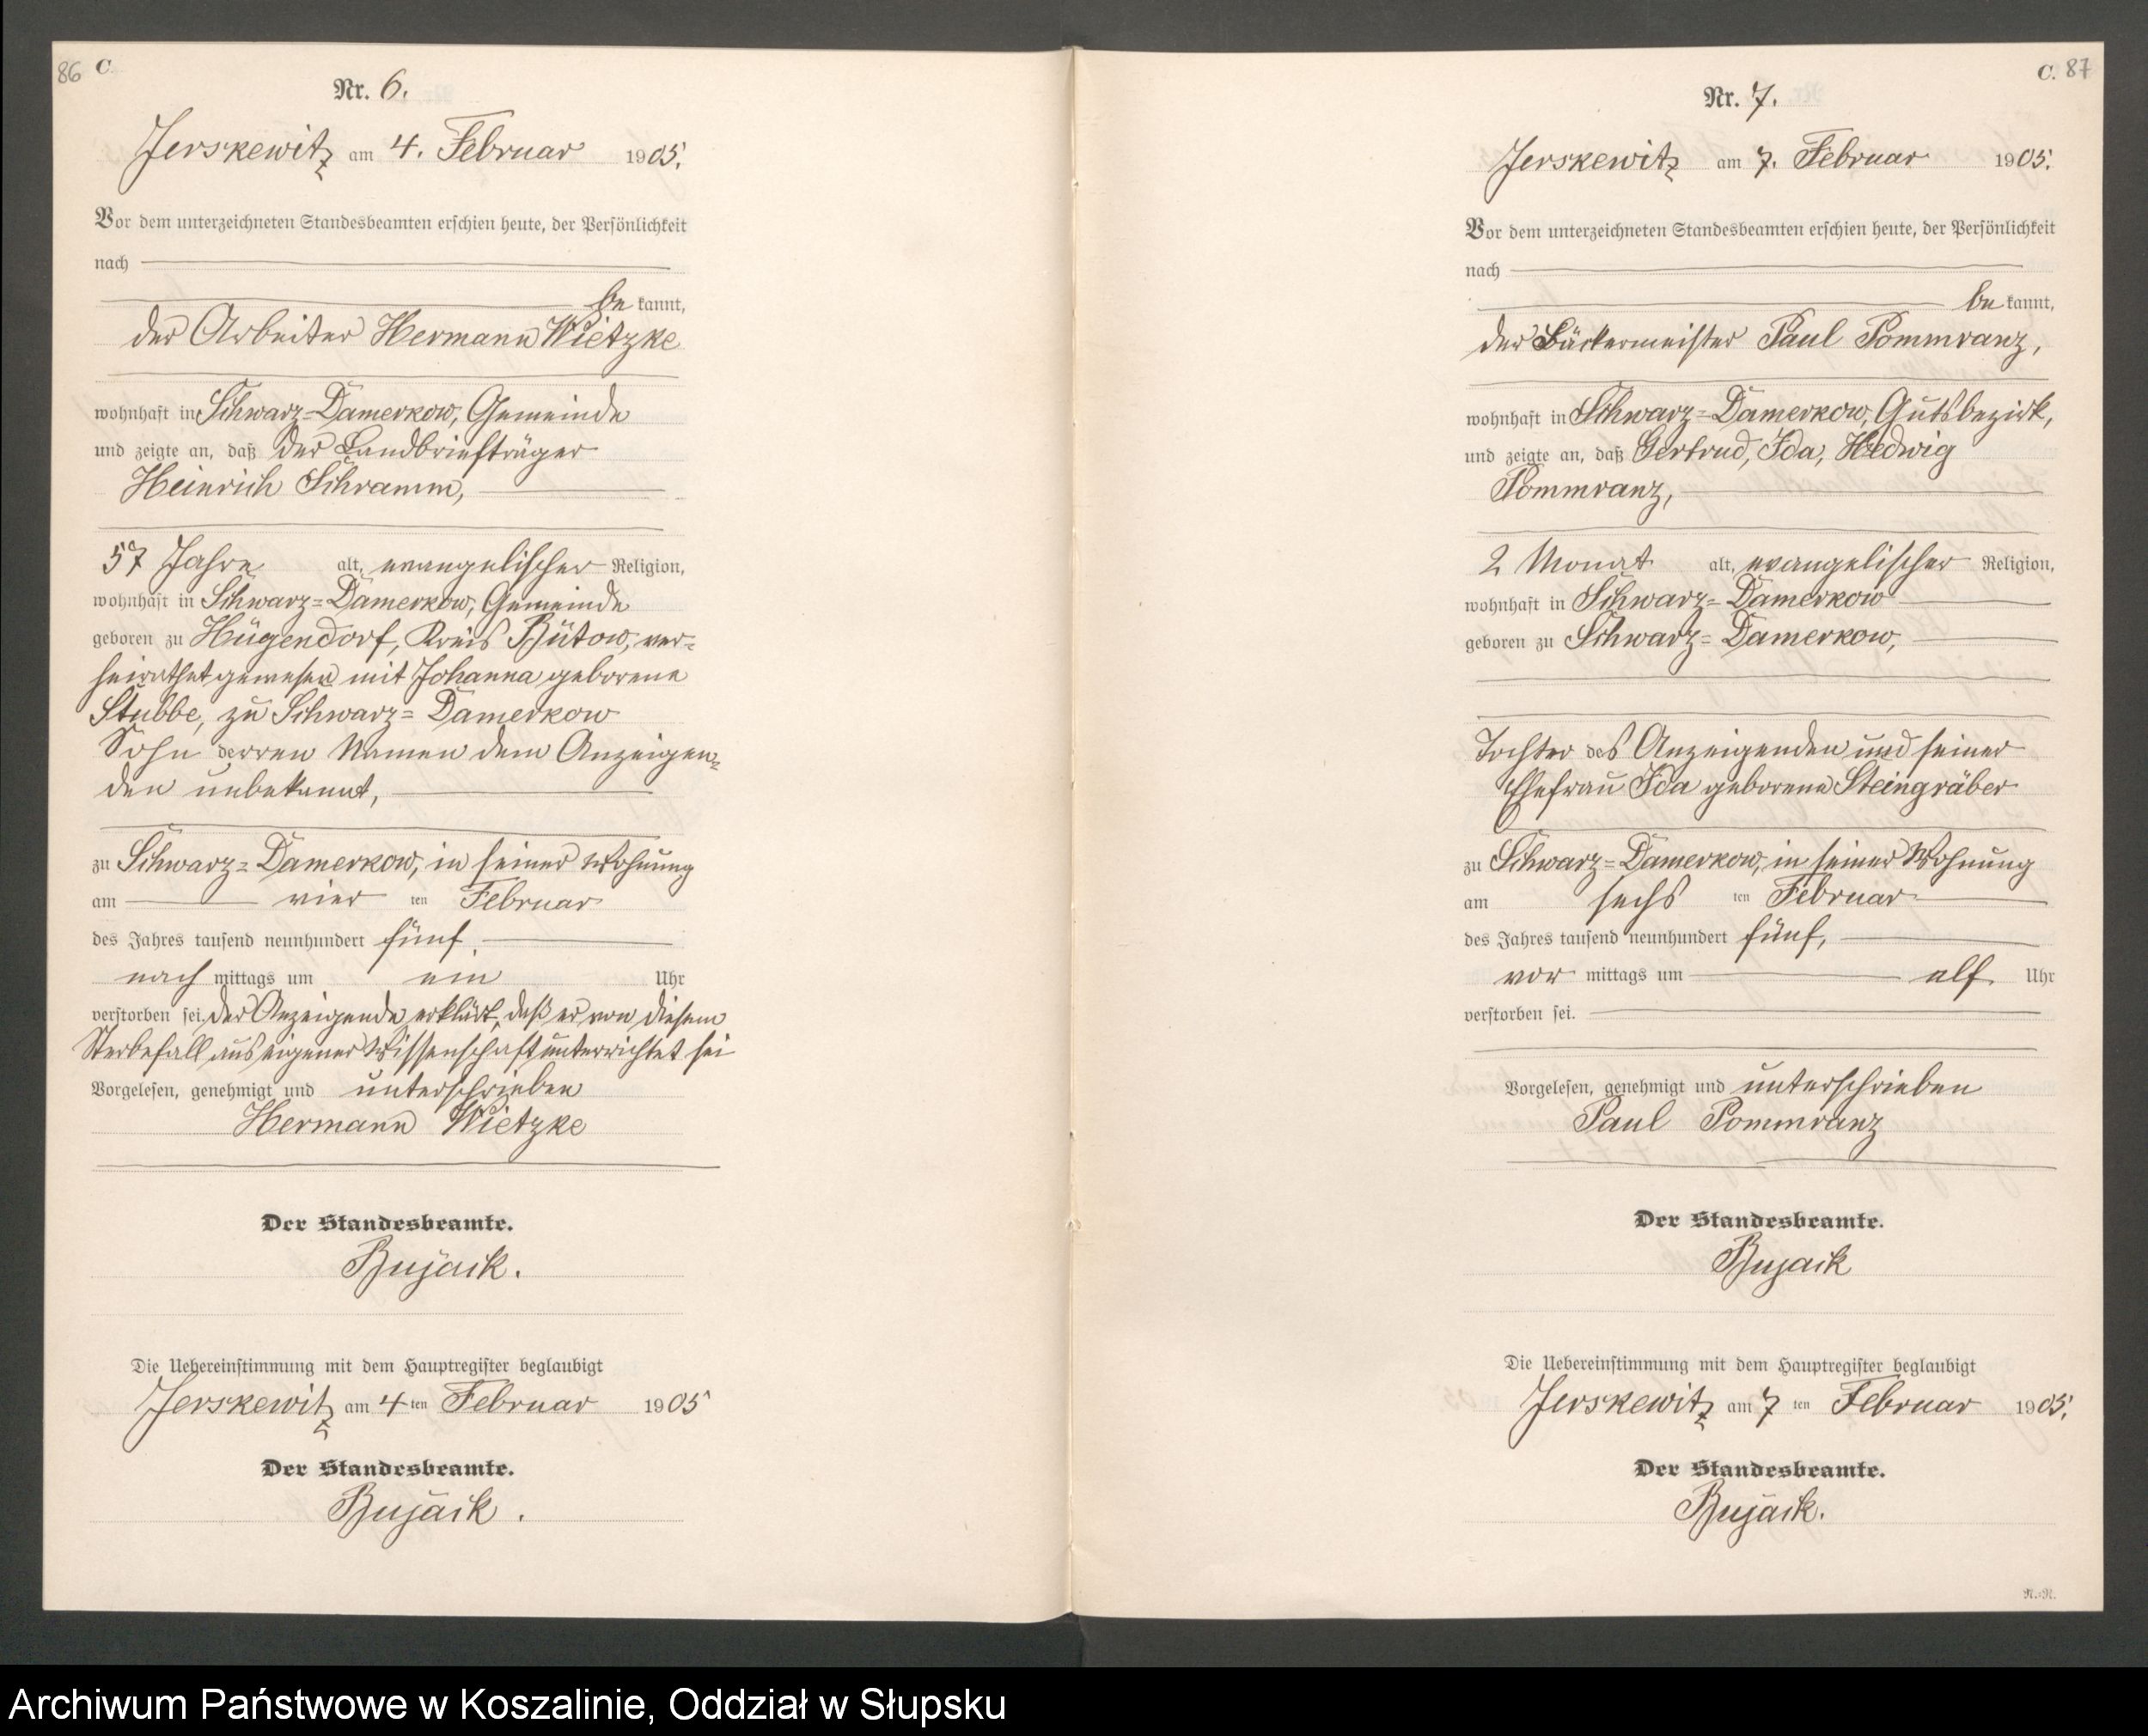 86 C.
Nr. 6.
Jerskewitz am 4. Februar 1905.
Vor dem unterzeichneten Standesbeamten erschien heute, der Persönlichkeit
nach
be kannt,
der Arbeiter Hermann Wietzke
wohnhaft in Schwarz=Damerkow, Gemeinde
und zeigte an, daß der Landbriefträger
Heinrich Schramm,
57 Jahre alt, evangelischer Religion,
wohnhaft in Schwarz=Damerkow, Gemeinde
geboren zu Hügendorf, Kreis Bütow, ver=
heirathet gewesen mit Johanna geborene
Stubbe, zu Schwarz=Damerkow
Sohn derren Namen dem Anzeigen=
den unbekannt,
zu Schwarz=Damerkow, in seiner Wohnung
am vier ten Februar
des Jahres tausend neunhundert fünf,
nach mittags um ein Uhr
verstorben sei. Der Anzeigende erklärt, daß er von diesem
Sterbefall aus eigener Wissenschaft unterrichtet sei
Vorgelesen, genehmigt und unterschrieben
Hermann Wietzke
Der Standesbeamte.
Bujack.
Die Uebereinstimmung mit dem Hauptregister beglaubigt
Jerskewitz am 4 ten Februar 1905
Der Standesbeamte.
Bujack.
C. 87
Nr. 7.
Jerskewitz am 7. Februar 1905.
Vor dem unterzeichneten Standesbeamten erschien heute, der Persönlichkeit
nach
be kannt,
der Bäckermeister Paul Pommranz,
wohnhaft in Schwarz=Damerkow, Gutsbezirk,
und zeigte an, daß Gertrud, Ida, Hedwig
Pommranz,
2 Monat alt, evangelischer Religion,
wohnhaft in Schwarz=Damerkow
geboren zu Schwarz=Damerkow,
Tochter des Anzeigenden und seiner
Ehefrau Ida geborene Steingräber
zu Schwarz=Damerkow, in seiner Wohnung
am sechs ten Februar
des Jahres tausend neunhundert fünf,
vor mittags um elf Uhr
verstorben sei.
Vorgelesen, genehmigt und unterschrieben
Paul Pommranz
Der Standesbeamte.
Bujack
Die Uebereinstimmung mit dem Hauptregister beglaubigt
Jerskewitz am 7 ten Februar 1905.
Der Standesbeamte.
Bujack.
R.=R.
Archiwum Państwowe w Koszalinie, Oddział w Słupsku